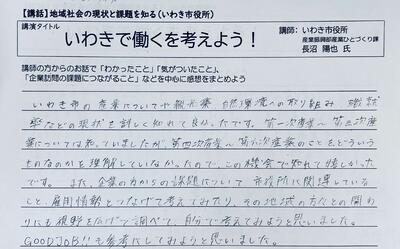 【講話】地域社会の現状と課題を知る（いわき市役所）
講演タイトル
いわきで働くを考えよう！
講師：いわき市役所
産業振興部産業ひとづくり課
長沼 陽也 氏
講師の方からのお話で「わかったこと」「気がついたこと」、
「企業訪問の課題につながること」などを中心に感想をまとめよう
いわき市の産業についてや観光業 への取り組み
率などの現状を詳しく知れて良かったです。第一次産業～第三次産
業については知っていましたが、第四次産業～第六次産業のことをどういう
ものなのかを理解していなかったので、この機会で知れて嬉しかった
です。また、企業の方からの課題について市役所に関連している
こと、雇用情報とつなげて考えてみたり、その地域の方たちとの関わ
りにも視野を広げて調べて、自分で考えてみようと思いました。
GOOD JOB!!も参考にしてみようと思いました。